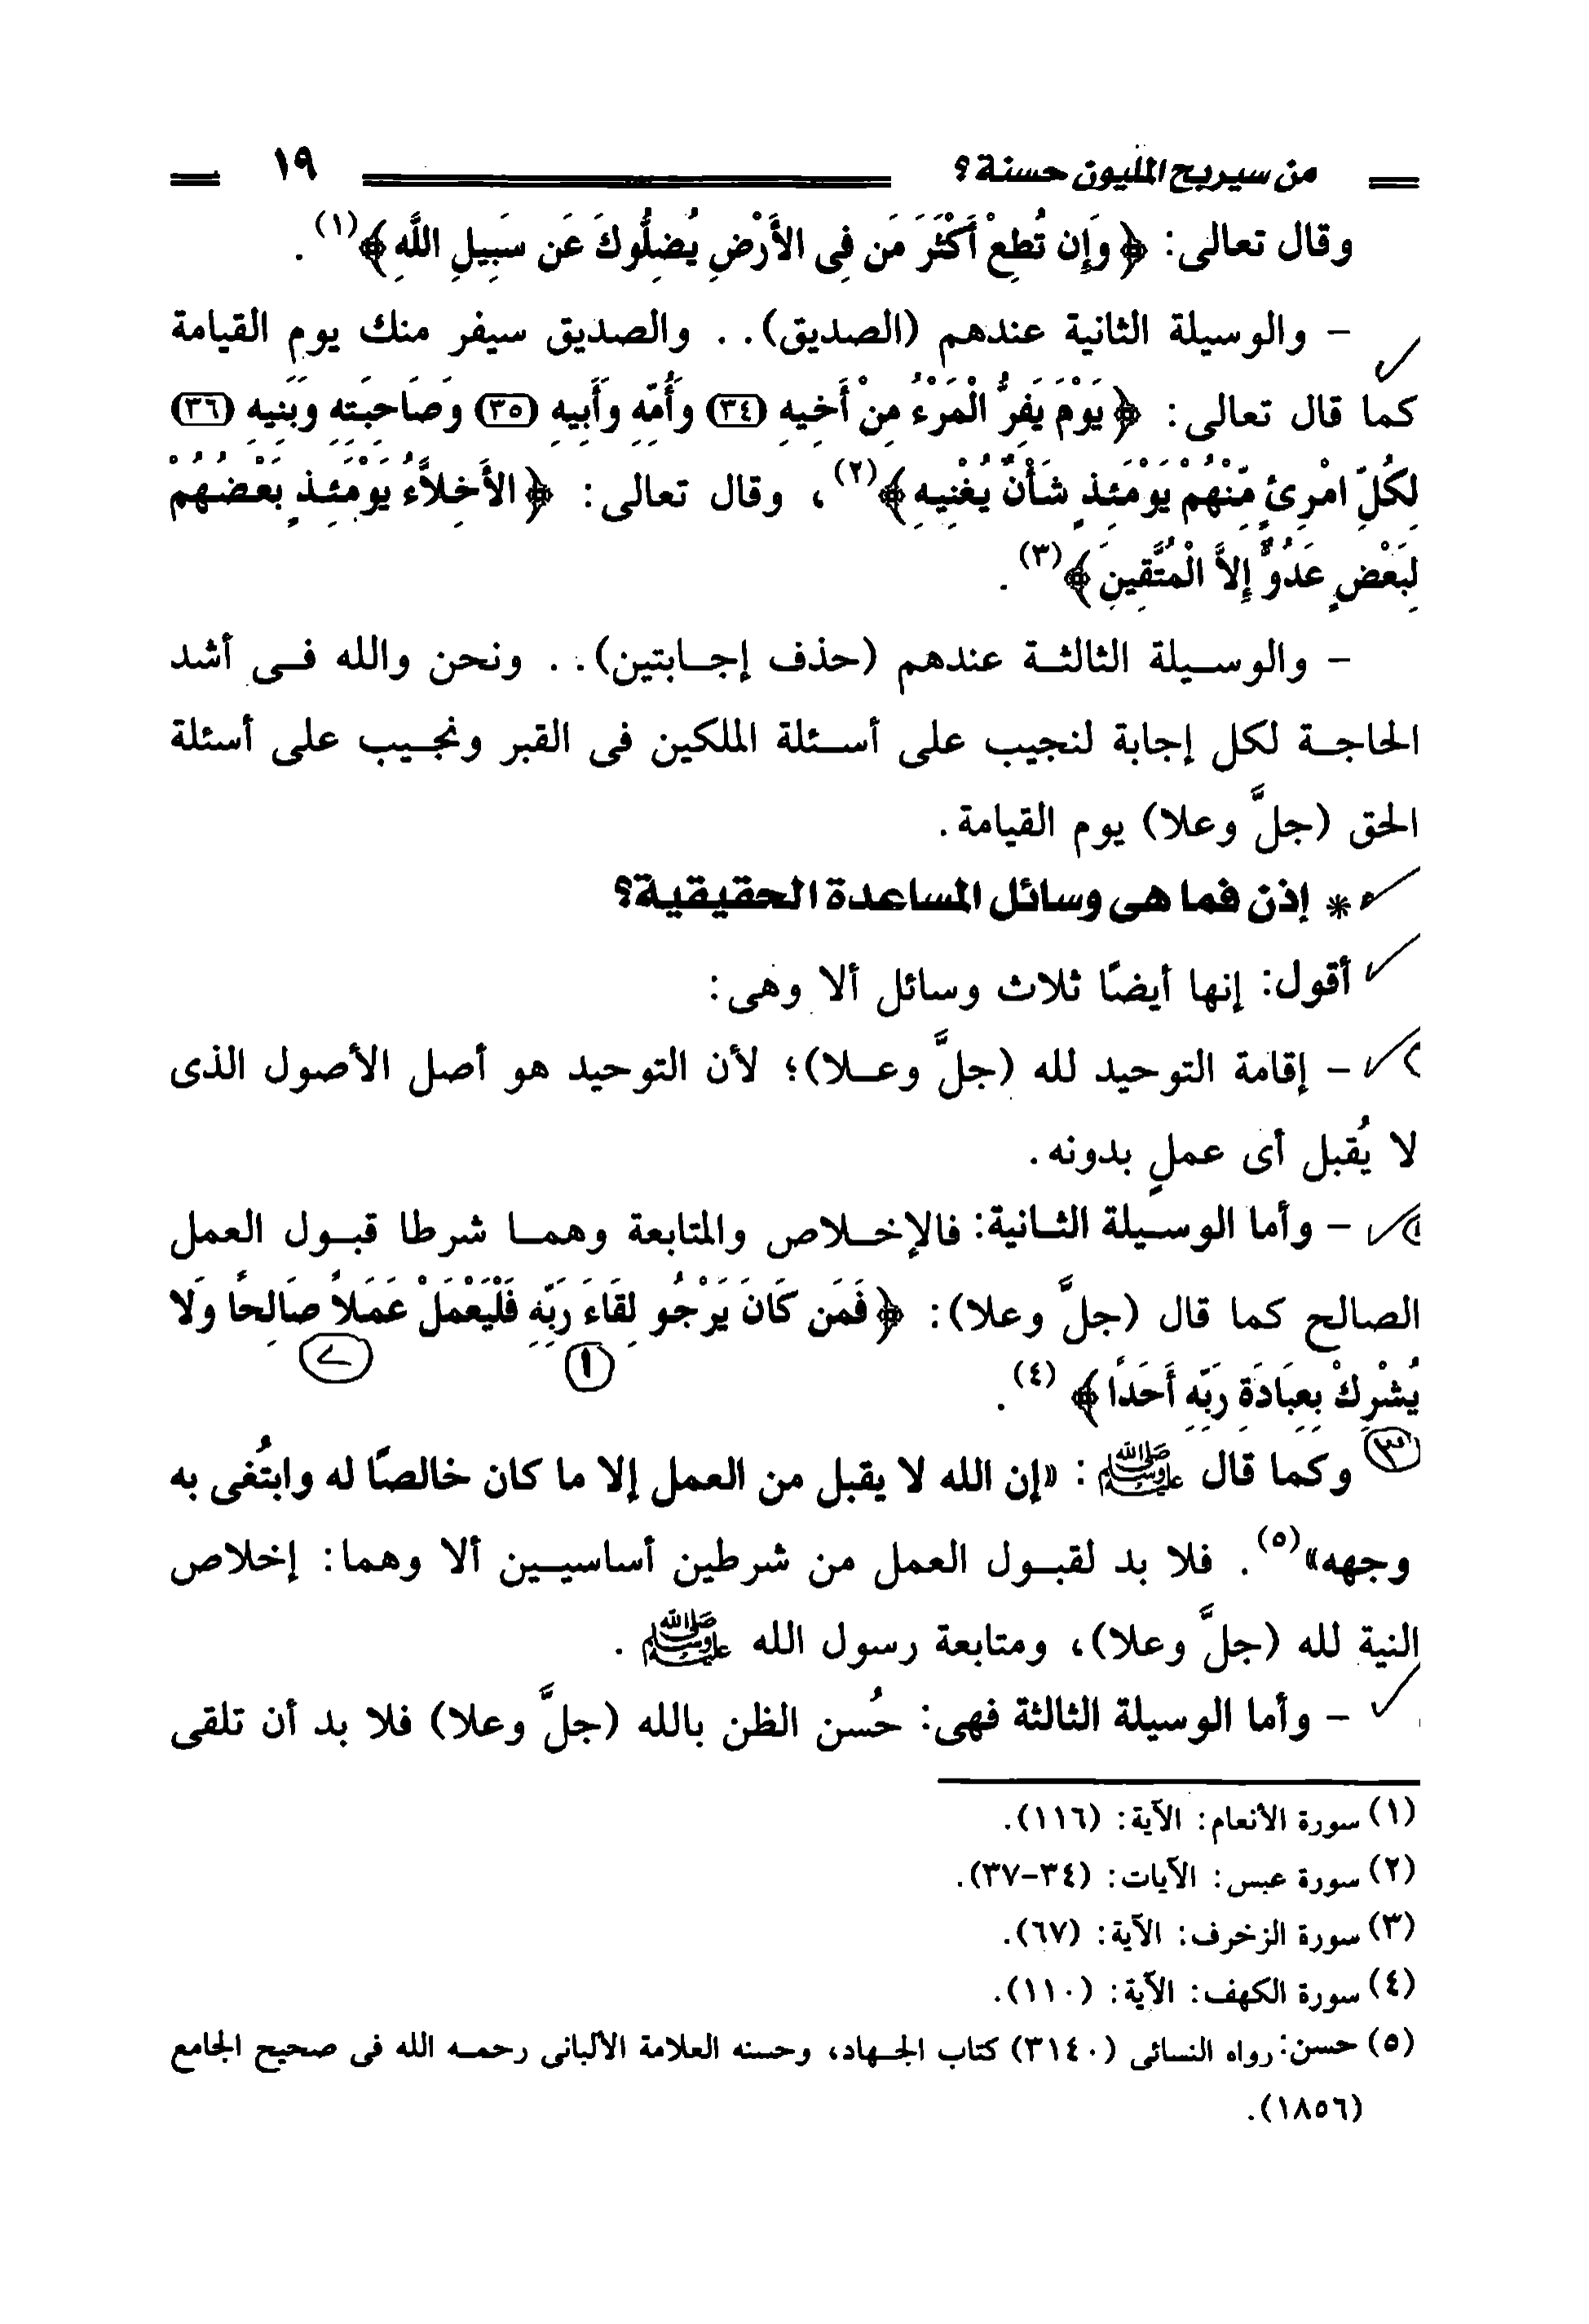 من سيربح المليون حسنة؟ ١٩
وقال تعالى: ﴿وَإِن تُطِعْ أَكْثَرَ مَن فِى الأَرْضِ يُضِلُّوكَ عَن سَبِيلِ اللَّهِ﴾(١).
- والوسيلة الثانية عندهم (الصديق).. والصديق سيفر منك يوم القيامة
كما قال تعالى: ﴿يَوْمَ يَفِرُّ الْمَرْءُ مِنْ أَخِيهِ (٣٤) وَأُمِّهِ وَأَبِيهِ (٣٥) وَصَاحِبَتِهِ وَبَنِيهِ (٣٦)
لِكُلِّ امْرِئٍ مِّنْهُمْ يَوْمَئِذٍ شَأْنٌ يُغْنِيهِ﴾(٢)، وقال تعالى: ﴿الأَخِلاَّءُ يَوْمَئِذٍ بَعْضُهُمْ
لِبَعْضٍ عَدُوٌّ إِلاَّ الْمُتَّقِينَ﴾(٣).
- والوسيلة الثالثة عندهم (حذف إجابتين).. ونحن والله فى أشد
الحاجة لكل إجابة لنجيب على أسئلة الملكين فى القبر ونجيب على أسئلة
الحق (جلَّ وعلا) يوم القيامة.
* إذن فما هى وسائل المساعدة الحقيقية؟
أقول: إنها أيضًا ثلاث وسائل ألا وهى:
- إقامة التوحيد لله (جلَّ وعلا)؛ لأن التوحيد هو أصل الأصول الذى
لا يُقبل أى عملٍ بدونه.
- وأما الوسيلة الثانية: فالإخلاص والمتابعة وهما شرطا قبول العمل
الصالح كما قال (جلَّ وعلا): ﴿فَمَن كَانَ يَرْجُو لِقَاءَ رَبِّهِ فَلْيَعْمَلْ عَمَلاً صَالِحًا وَلَا
١ ٢
يُشْرِكْ بِعِبَادَةِ رَبِّهِ أَحَدًا﴾ (٤).
٣
وكما قال ﷺ: «إن الله لا يقبل من العمل إلا ما كان خالصًا له وابتُغى به
وجهه»(٥). فلا بد لقبول العمل من شرطين أساسيين ألا وهما: إخلاص
النية لله (جلَّ وعلا)، ومتابعة رسول الله ﷺ.
- وأما الوسيلة الثالثة فهى: حُسن الظن بالله (جلَّ وعلا) فلا بد أن تلقى
(١) سورة الأنعام: الآية: (١١٦).
(٢) سورة عبس: الآيات: (٣٤-٣٧).
(٣) سورة الزخرف: الآية: (٦٧).
(٤) سورة الكهف: الآية: (١١٠).
(٥) حسن: رواه النسائى (٣١٤٠) كتاب الجهاد، وحسنه العلامة الألبانى رحمه الله فى صحيح الجامع
(١٨٥٦).